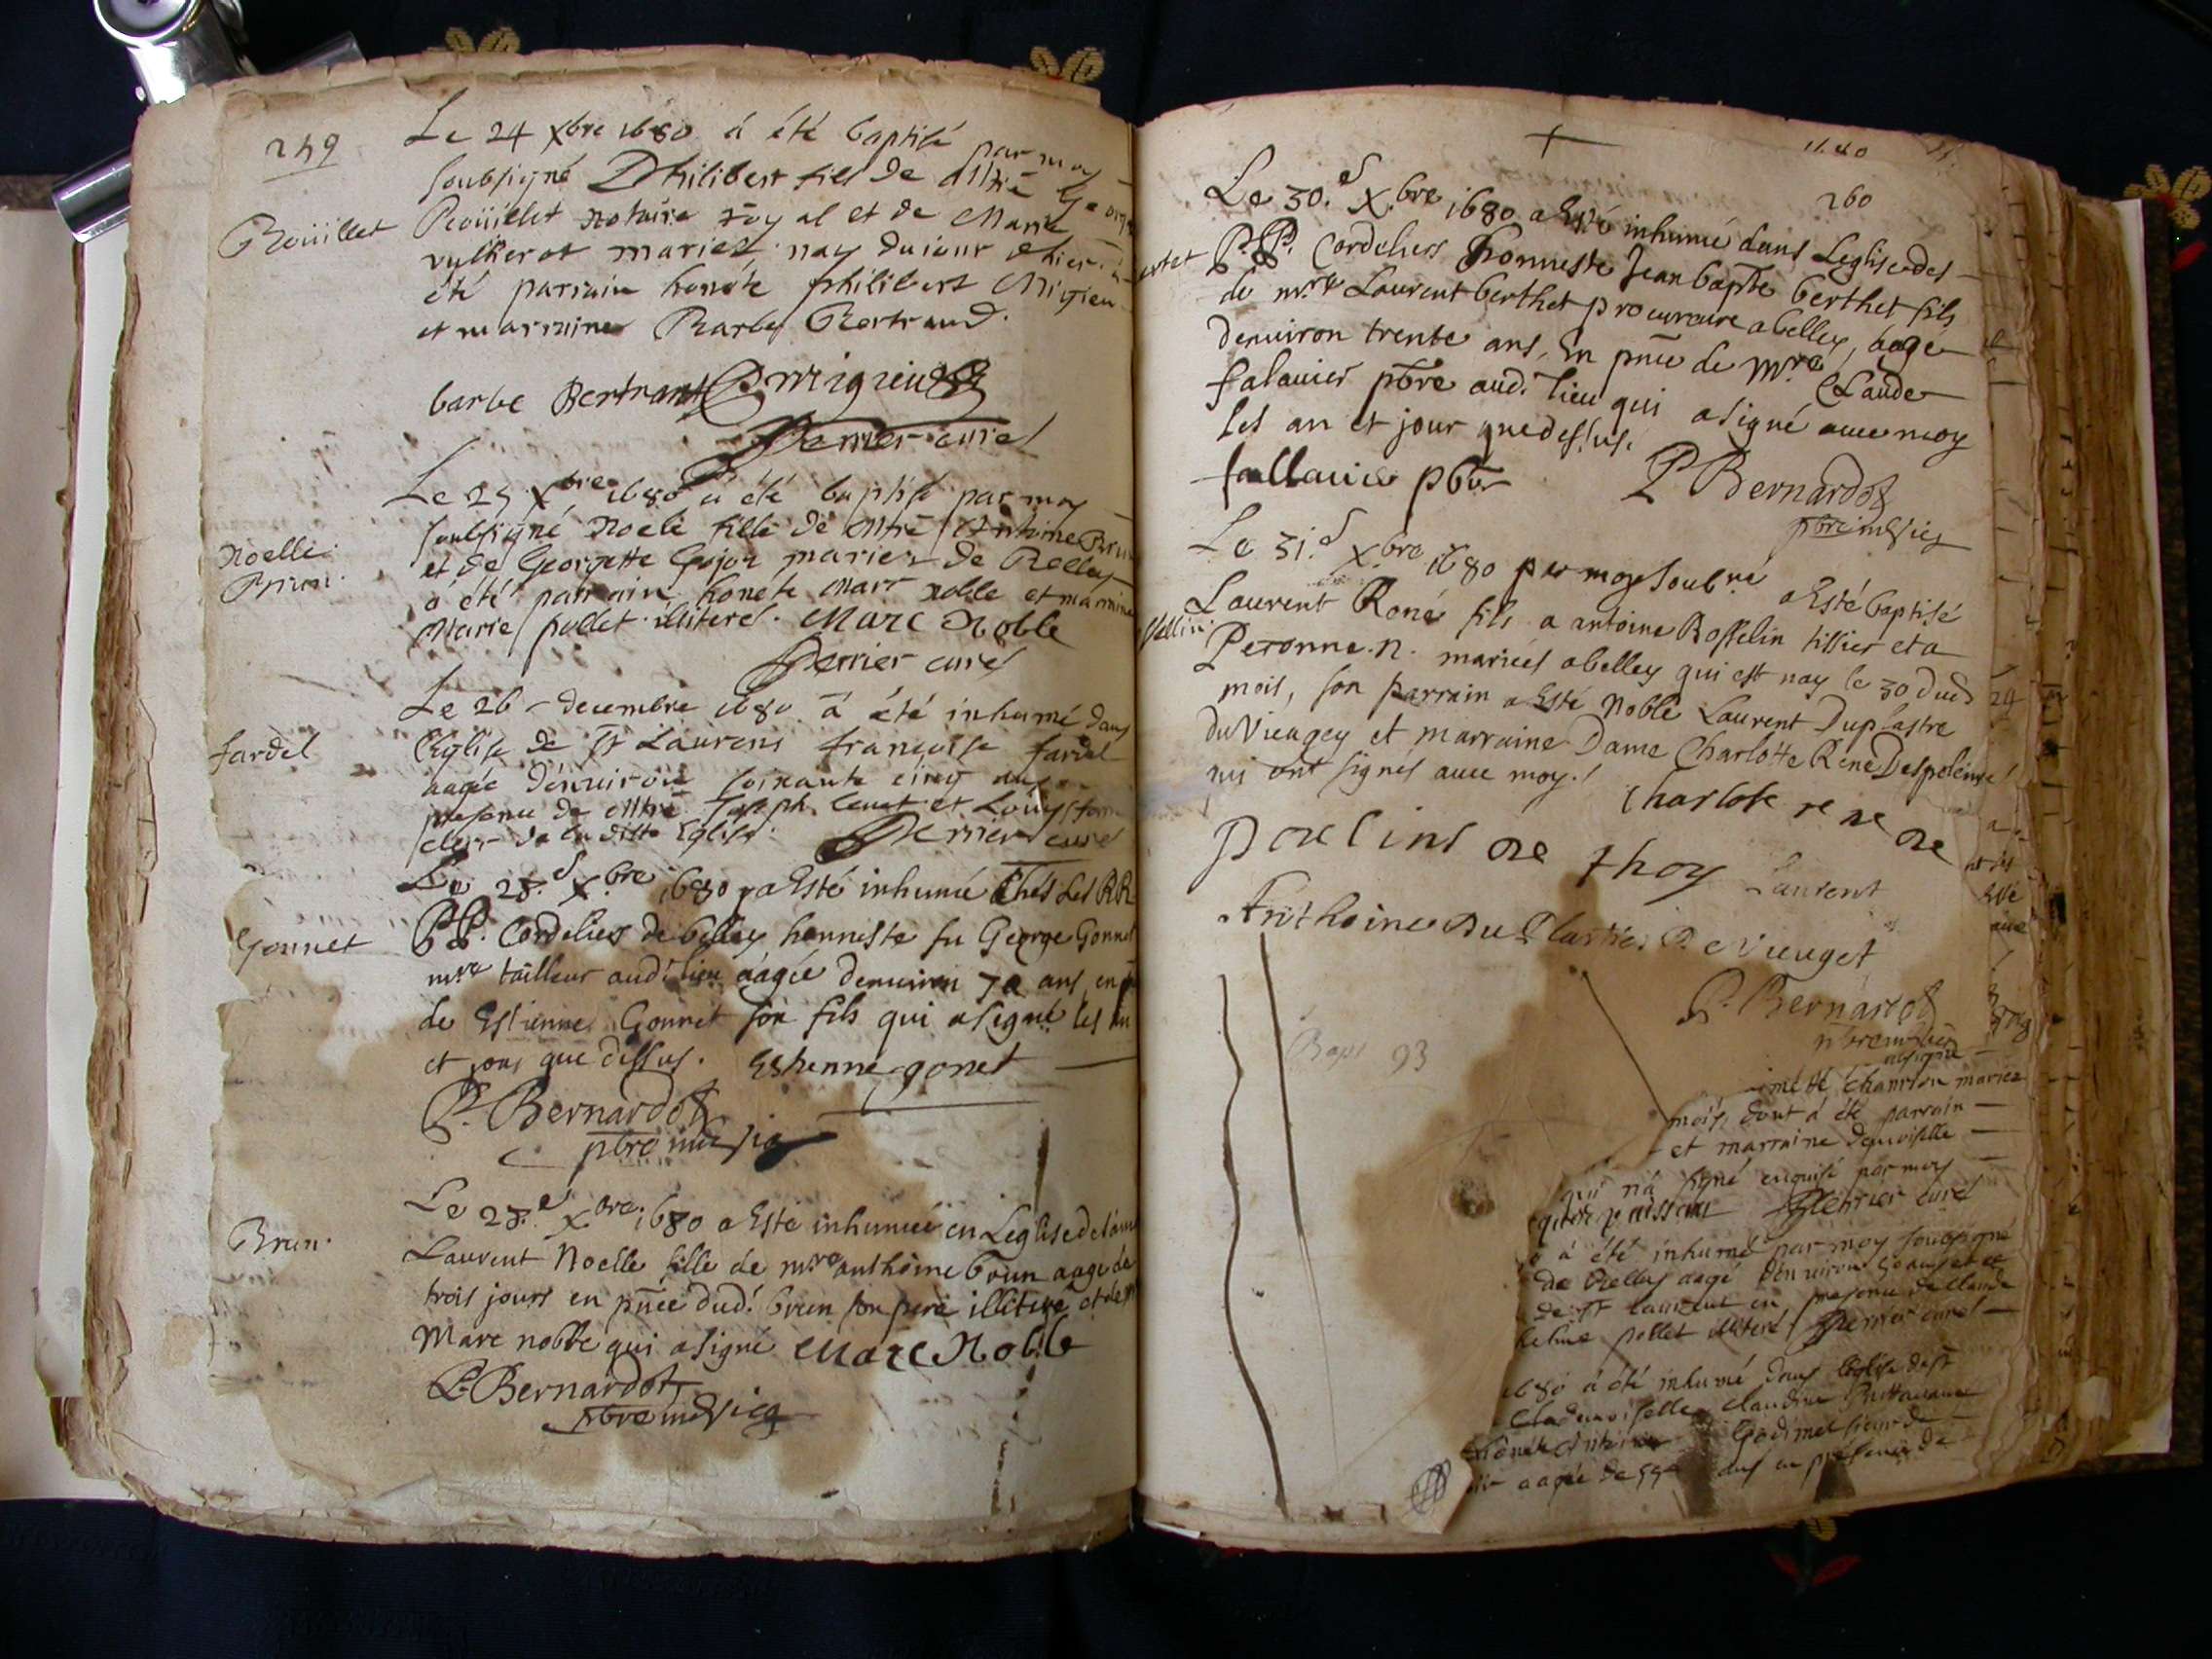 249
Le 24 Xbre 1680 á été baptisé par moy
soubsigné Philibert fils de Mtre George
Rouillet
Rouillet notaire royal et de Marie
vulherot mariez nay du iour dhier. a
été parrain honéte philibert Migieu
et marraine Barbe Bertrand.
barbe Bertrant P migieu
Perrier curé
Le 25 Xbre 1680 á été baptisé par moy
soubsigné Noele fille de Mtre Anthoine Brun
Noelle
Brun.
et de Georgette Gojon mariez de Belley
á été parrain honéte Marc noble et marraine
Marie pollet illiteré. Marc Noble
Perrier curé
Le 26 decembre 1680 á été inhumé dans
fardel
l'Eglise de St Laurens françoise fardel
aagée d'énuiron soixante cinq ans
presence de Mtre Joseph et Louys
clerc de la ditte Eglise. Perrier curé
Le 28.e X.bre 1680 a Esté inhumé Chés Les RR
Gonnet
PP. Cordeliers de belley honneste fu George Gonnet
mre tailleur aud.t lieu aagée denuiron 70 ans, en
de Estienne Gonnet son fils qui a signé les an
et jour que dessus. Estienne gonet
P. Bernardot
pbre vic
Le 28.e X.bre 1680 a Esté inhumée en Leglise de
Brun.
Laurent Noelle fille de mre anthoine brun aage de
trois jours en pñce dud.t brun son pere illiteré et de
Marc noble qui a signé Marc Noble
P. Bernardot
pbre vic
1680
260
Le 30.e X.bre 1680 a Esté inhumé dans Leglise des
P.P. Cordeliers honneste Jean bapte berthet fils
de mre Laurent berthet procureur a belley, aage
denuiron trente ans, En pñce de Mre Claude
falauier pbre aud.t lieu qui a signé auec moy
les an et jour que dessus.
fallauier pbre P Bernardot
pbre vic
Le 31.e Xbre 1680 par moy soubné a Esté baptisé
Laurent René fils a antoine Rosselin tissier et a
sellin.
Peronne .n. mariés a belley qui est nay le 30 dud
mois, son parrain a Esté Noble Laurent Duplastre
du Vieugey et marraine Dame Charlotte René Despoleins
qui ont signés auec moy. Charlote rene de
poulins de thoy Laurent
Anthoine Du Plastre De Vieuget
P. Bernardot
pbre vic
Bapt 93
soubsigné
Chanrion mariez
mois, dont á été parrain
et marraine demoiselle
qui n'á signé enquise par moy
Perrier curé
á été inhumé par moy soubsigné
de Belley aagé d'énuiron
de St laurent en presence de Claude
pollet illiteré Perrier curé
1680 á été inhumé dans l'église de St
Mademoiselle Claudine
honéte Godimel sieur de
aagée de 55 ans en presence de